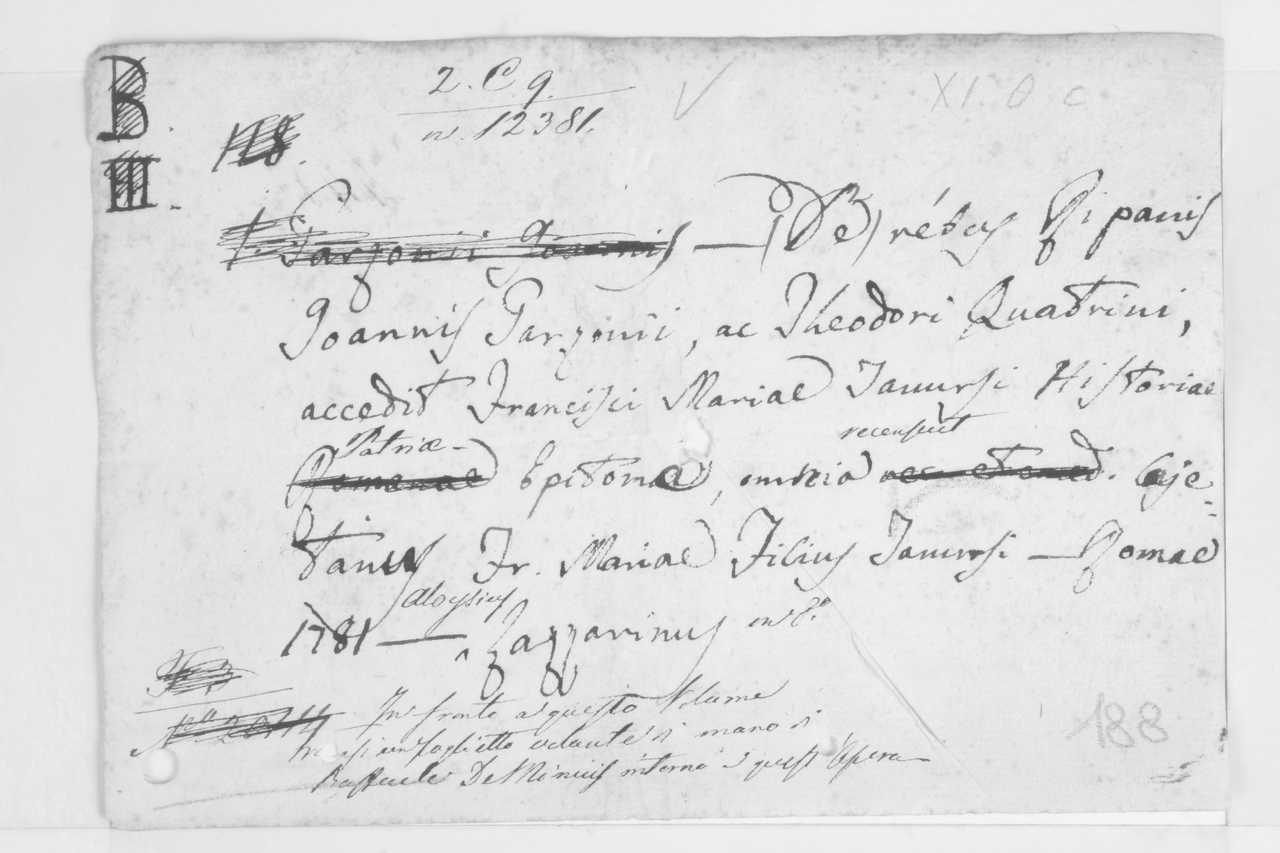 B.
III.
2. C 9.
n. 12381.
XI. θ c
118.
Garzonii Joannis — (De) rébus Ripanis
Joannis Garzonii, ac Theodori Quatrini,
accedit Francisci Mariae Tanursi Historiae
Patriae
Romanae Epitome, omnia
recensuit
Caje-
tanus Fr. Mariae Filius Tanursi — Romae
Aloysius
1781 — Zazzarinus in 8.º
In fronte a questo Volume
un foglietto volante di mano di
Raffaele De Minicis intorno a quest'Opera
188